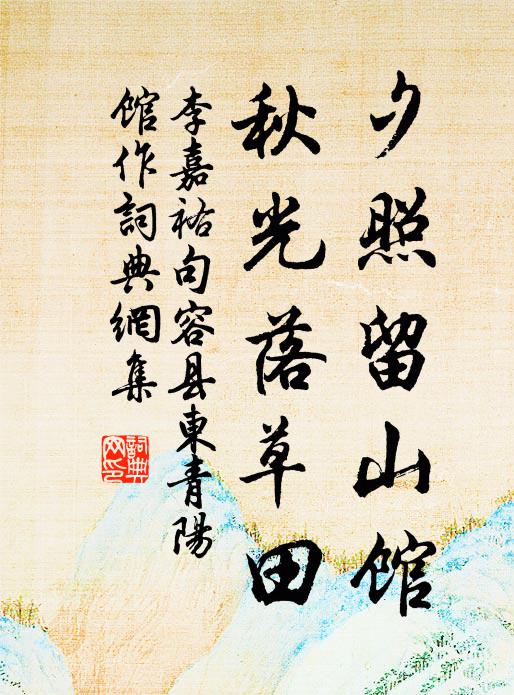 夕照留山館
秋光落草田
李嘉祐句容县東青陽
館作詞典網集
詞典网印